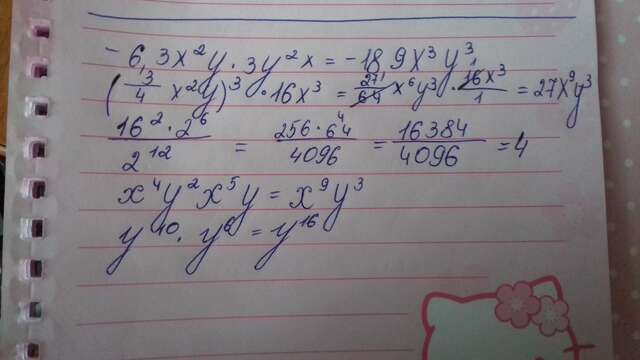 -6,3x²y·3y²x = -18,9x³y³
(3/4 x²y)³·16x³ = 27/64 x⁶y³·16x³/1 = 27x⁹y³
16²·2⁶/2¹² = 256·64/4096 = 16384/4096 = 4
x⁴y²x⁵y = x⁹y³
y¹⁰·y⁶ = y¹⁶